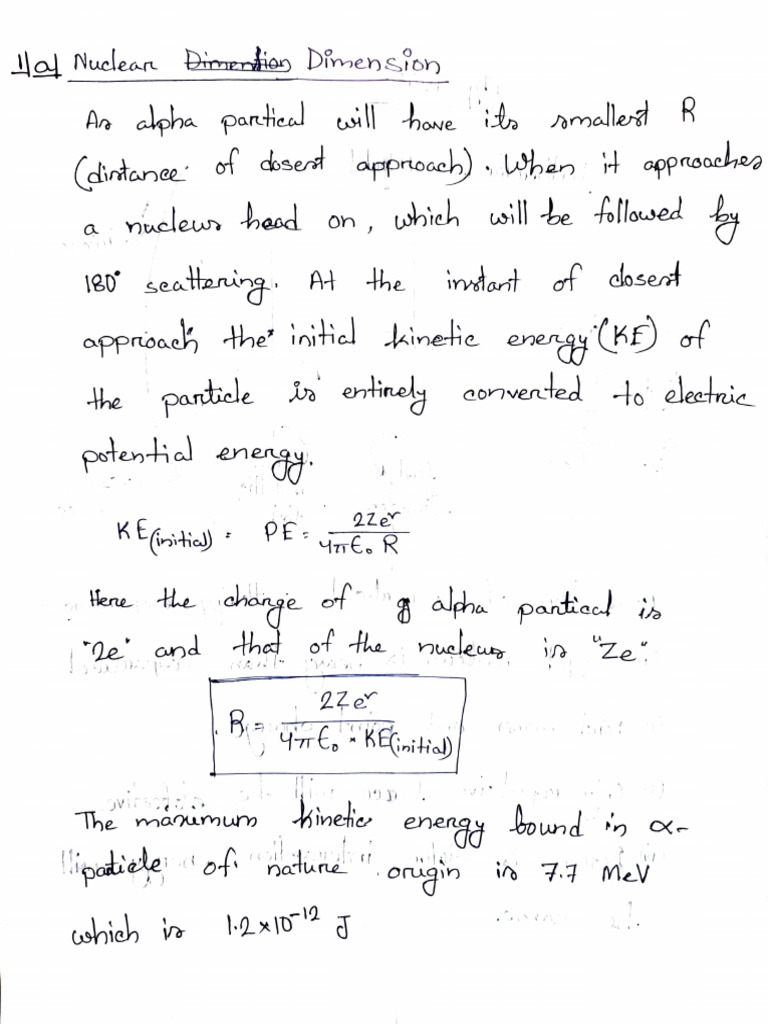 1|a| Nuclear Dimention Dimension
As alpha partical will have its smallest R
(distance of closest approach). When it approaches
a nucleus head on, which will be followed by
180° scattering. At the instant of closest
approach the initial kinetic energy (KE) of
the particle is entirely converted to electric
potential energy.
KE(initial) = PE = 2Ze² / 4πϵ₀ R
Here the charge of alpha partical is
"2e" and that of the nucleus is "Ze".
R = 2Ze² / 4πϵ₀ × KE(initial)
The maxumum kinetic energy bound in α-
paticle of nature origin is 7.7 MeV
which is 1.2×10⁻¹² J